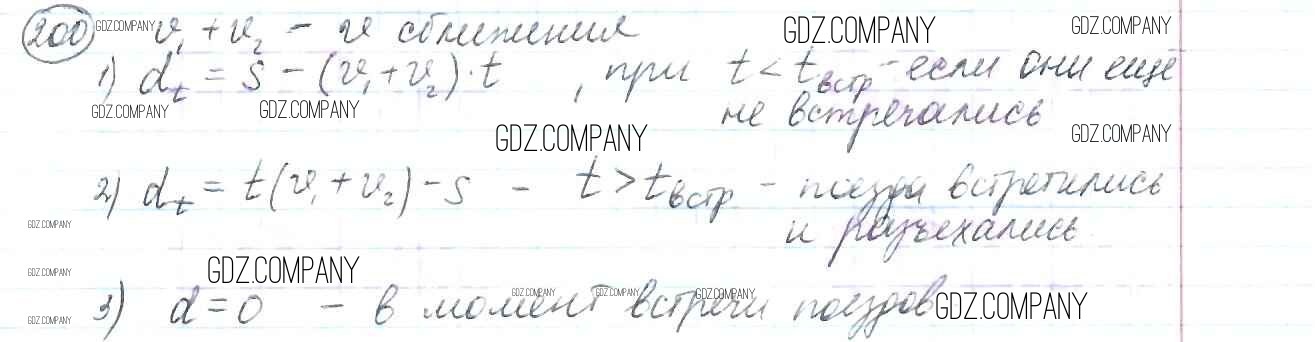 200 GDZ.COMPANY v₁ + v₂ - v сближения GDZ.COMPANY GDZ.COMPANY
1) d_t = S - (v₁ + v₂) · t , при t < t_встр - если они ещё
GDZ.COMPANY GDZ.COMPANY не встречались
GDZ.COMPANY GDZ.COMPANY
2) d_t = t(v₁ + v₂) - S - t > t_встр - поезда встретились
GDZ.COMPANY и разъехались
GDZ.COMPANY GDZ.COMPANY
GDZ.COMPANY GDZ.COMPANY GDZ.COMPANY
GDZ.COMPANY 3) d = 0 - в момент встречи поездов GDZ.COMPANY